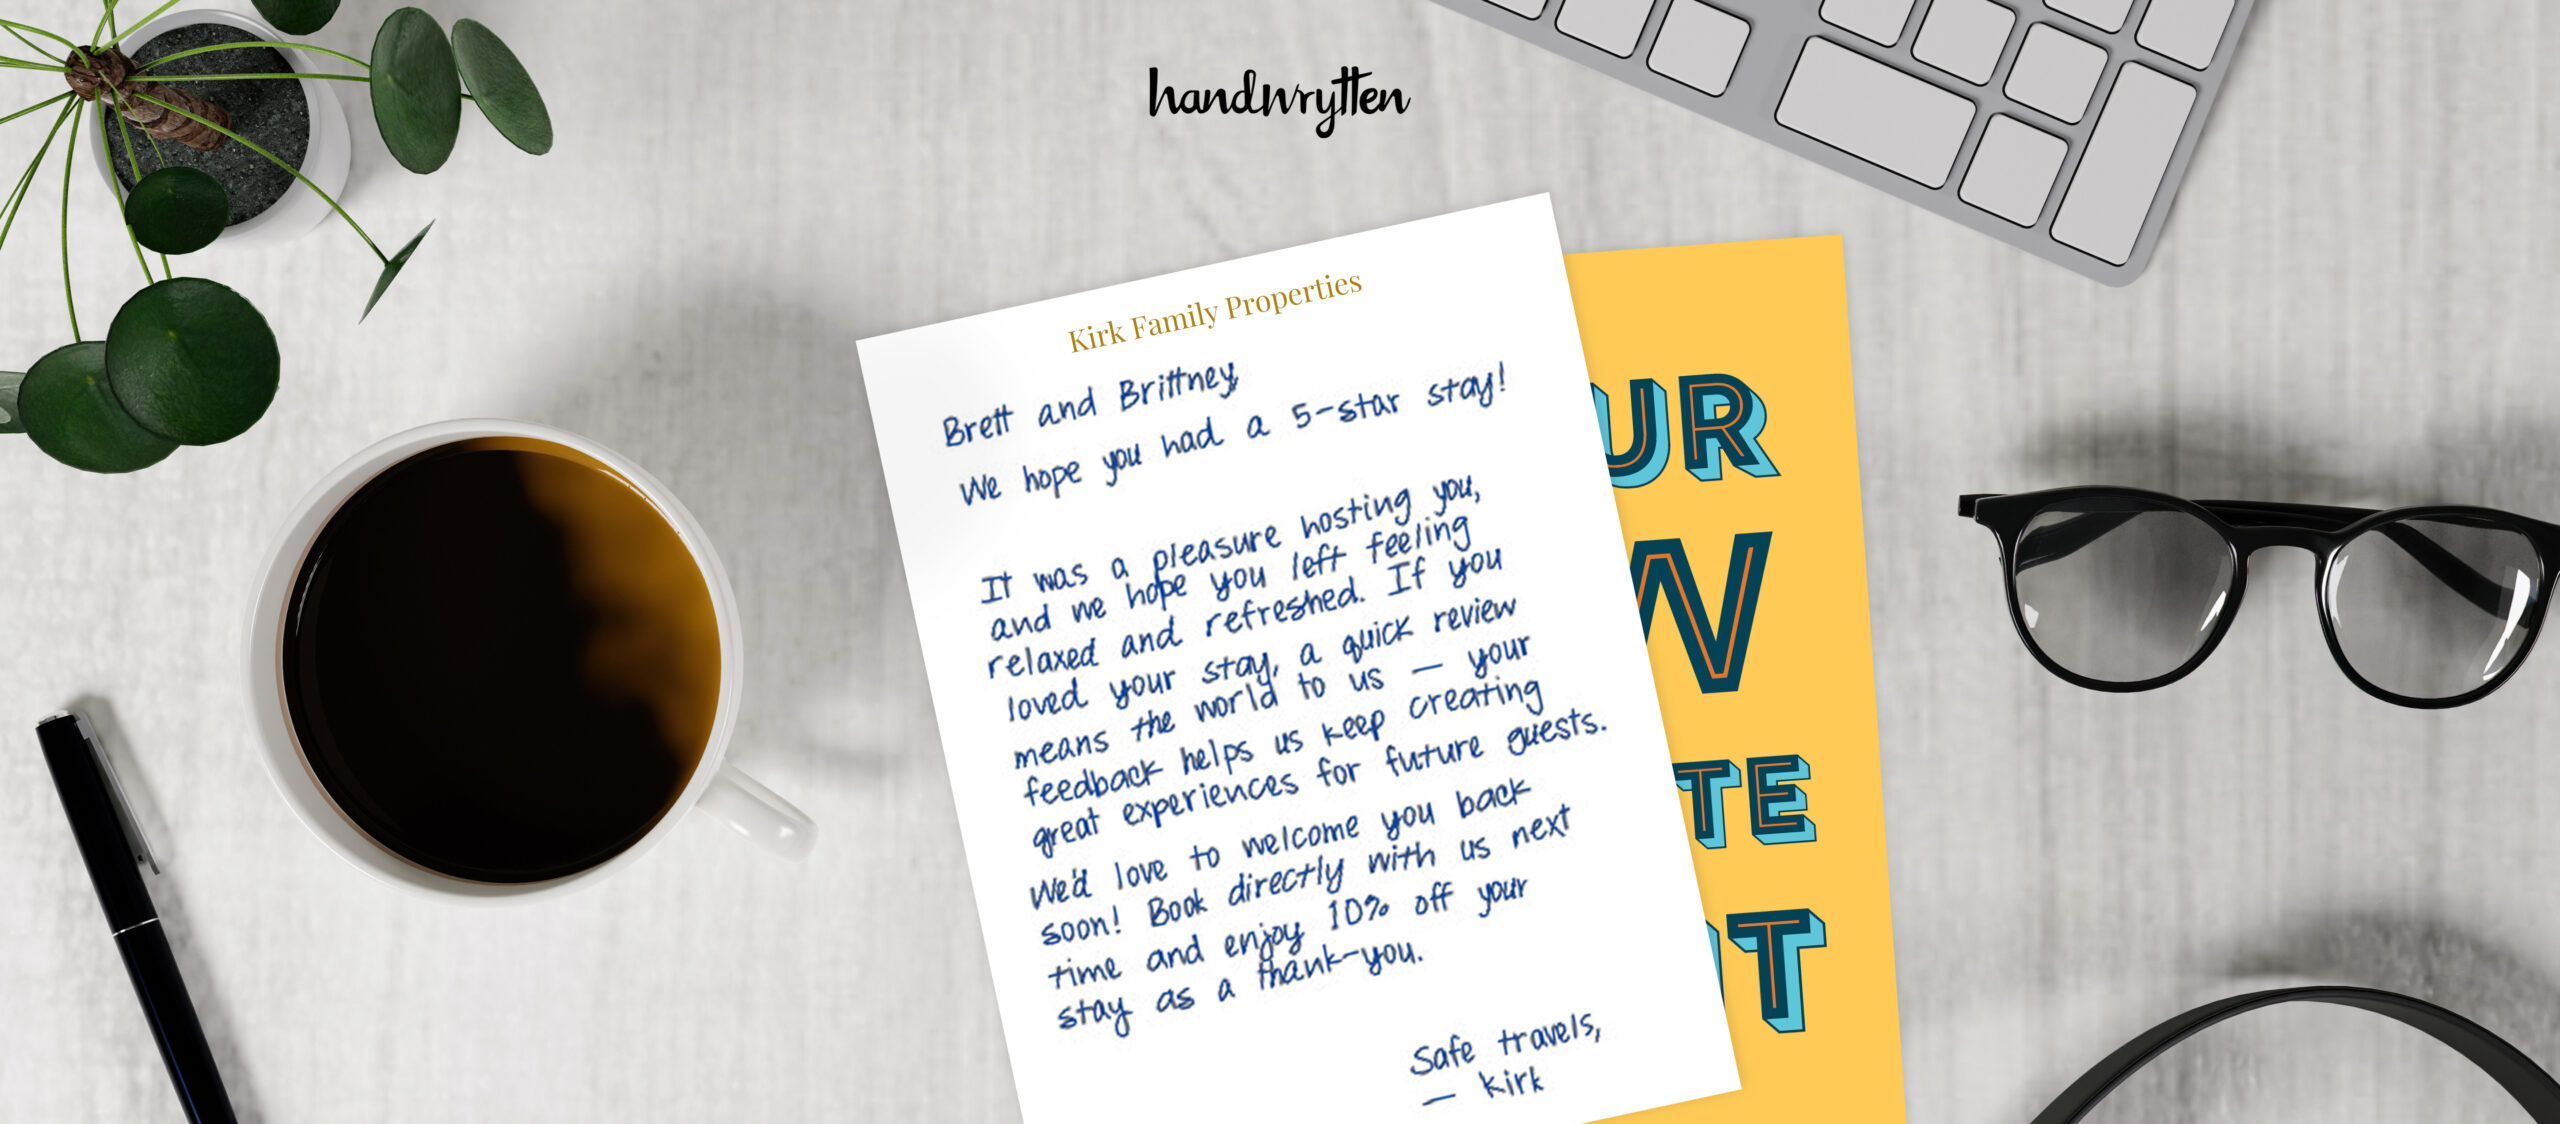 handwrytten
Kirk Family Properties
Brett and Brittney,
We hope you had a 5-star stay!
It was a pleasure hosting you,
and we hope you left feeling
relaxed and refreshed. If you
loved your stay, a quick review
means the world to us — your
feedback helps us keep creating
great experiences for future guests.
We'd love to welcome you back
soon! Book directly with us next
time and enjoy 10% off your
stay as a thank-you.
Safe travels,
— Kirk
UR
W
TE
NT